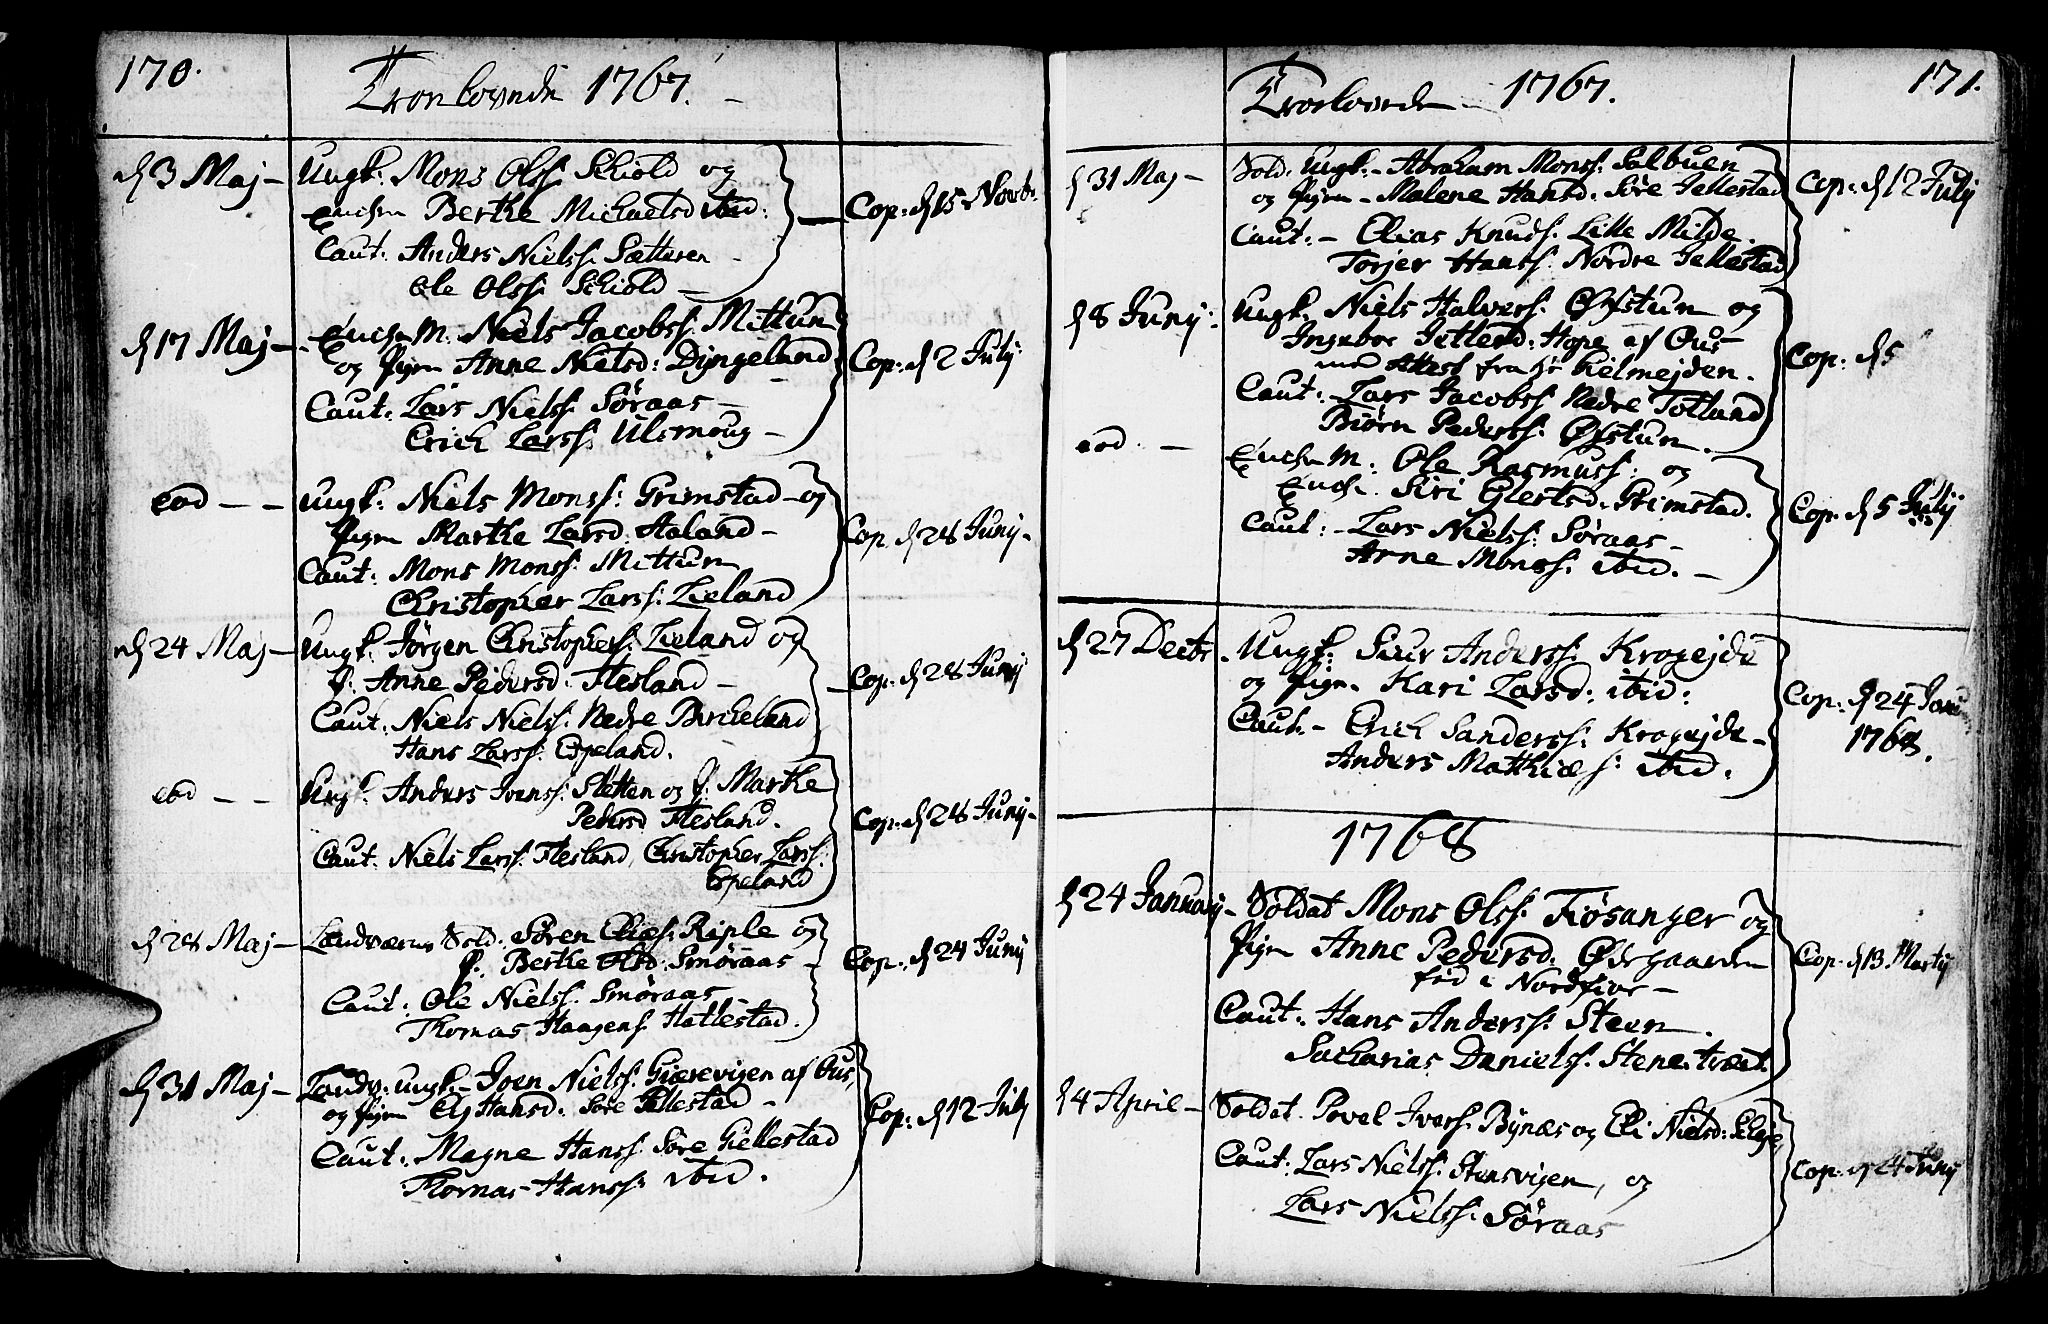 170.
Troelovede 1767.
d 3 Maj — Ungk: Mons Olss: Schiold og
Enchen Berthe Michaelsd ibid:
Caut: Anders Nielss: Sætteren —
Ole Olss: Schiold —
Cop: d 15 Novbr.
d 17 Maj — Enchem: Niels Jacobss: Mittun
og Pigen Anne Nielsd: Dyngeland
Caut: Lars Nielss: Søraas —
Erich Larss: Ulsmoug —
Cop: d 2 July
eod — — Ungk: Niels Monss: Grimstad og
Pigen Marthe Larsd: Aaland —
Caut: Mons Monss: Mittun
Christopher Larss: Lieland
Cop. d 28 Juny —
d 24 Maj — Ungk: Jørgen Christophers: Lieland og
P. Anne Pedersd: Flesland —
Caut: Niels Nielss: Nedre Birckeland
Hans Larss: Espeland.
Cop: d 28 Juny
eod — — Ungk: Anders Ivenss: Sletten og P: Marthe
Pedersd Flesland.
Caut: Niels Larss: Flesland, Christopher Larss:
Espeland
Cop: d 28 Juny —
d 28 Maj — Landværns Sold: Søren Elies: Riple og
P. Berthe Olsd: Smøraas —
Caut: Ole Nielss: Smøraas
Thomas Haagens: Hatlestad.
Cop: d 24 Juny
d 31 Maj — Landv: ungk — Joen Nielss: Giærevigen af Ous,
og Pigen Elj Hansd: Søre Gellestad —
Caut: Magne Hanss: Søre Giellestad
Thomas Hanss: ibid.
Cop: d 12 July
171.
Troelovede 1767.
d 31 Maj — Sold. Ungk. — Abraham Monss: Salbuen
og Pigen — Malene Hansd: Søre Jellestad
Caut: — Elias Knuds: Lille Milde.
Torjer Hanss: Nordre Jellestad
Cop: d 12 July
d 8 Juny: Ungk: Niels Halvers: Øfstun og
Ingebor Jetlesd: Hope af Ous —
med Attest fra Hr Hielmejden.
Caut: Lars Jacobss: Nedre Totland
Biørn Pederss: Øfstun.
Cop: d 5
eod: — Enchem: Ole Rasmuss: og
Enche Siri Glertsd: Grimstad.
Caut: — Lars Nielss: Søraas —
Arne Monss: ibid. —
Cop. d 5 July
d 27 Decbr. Ungk: Siur Anderss: Krogejde
og Pigen Kari Larsd: ibid:
Caut: — Erich Sanderss: Krogejde —
Anders Mathiæs: ibid.
Cop: d 24 Janu
1768.
1768
d 24 January — Soldat Mons Olss: Fiøsanger og
Pigen Anne Pedersd: Ødegaarden
fød i Nordfior —
Caut: Hans Anderss: Steen.
Sacharias Danielss: Stenetvæt
Cop. d 13 Martij
d 4 April — Soldat. Povel Ivers: Bynæs og Eli Nielsd:
Caut: Lars Nielss: Stensvigen, og
Lars Nielss: Søraas
Cop: d 24 Juny